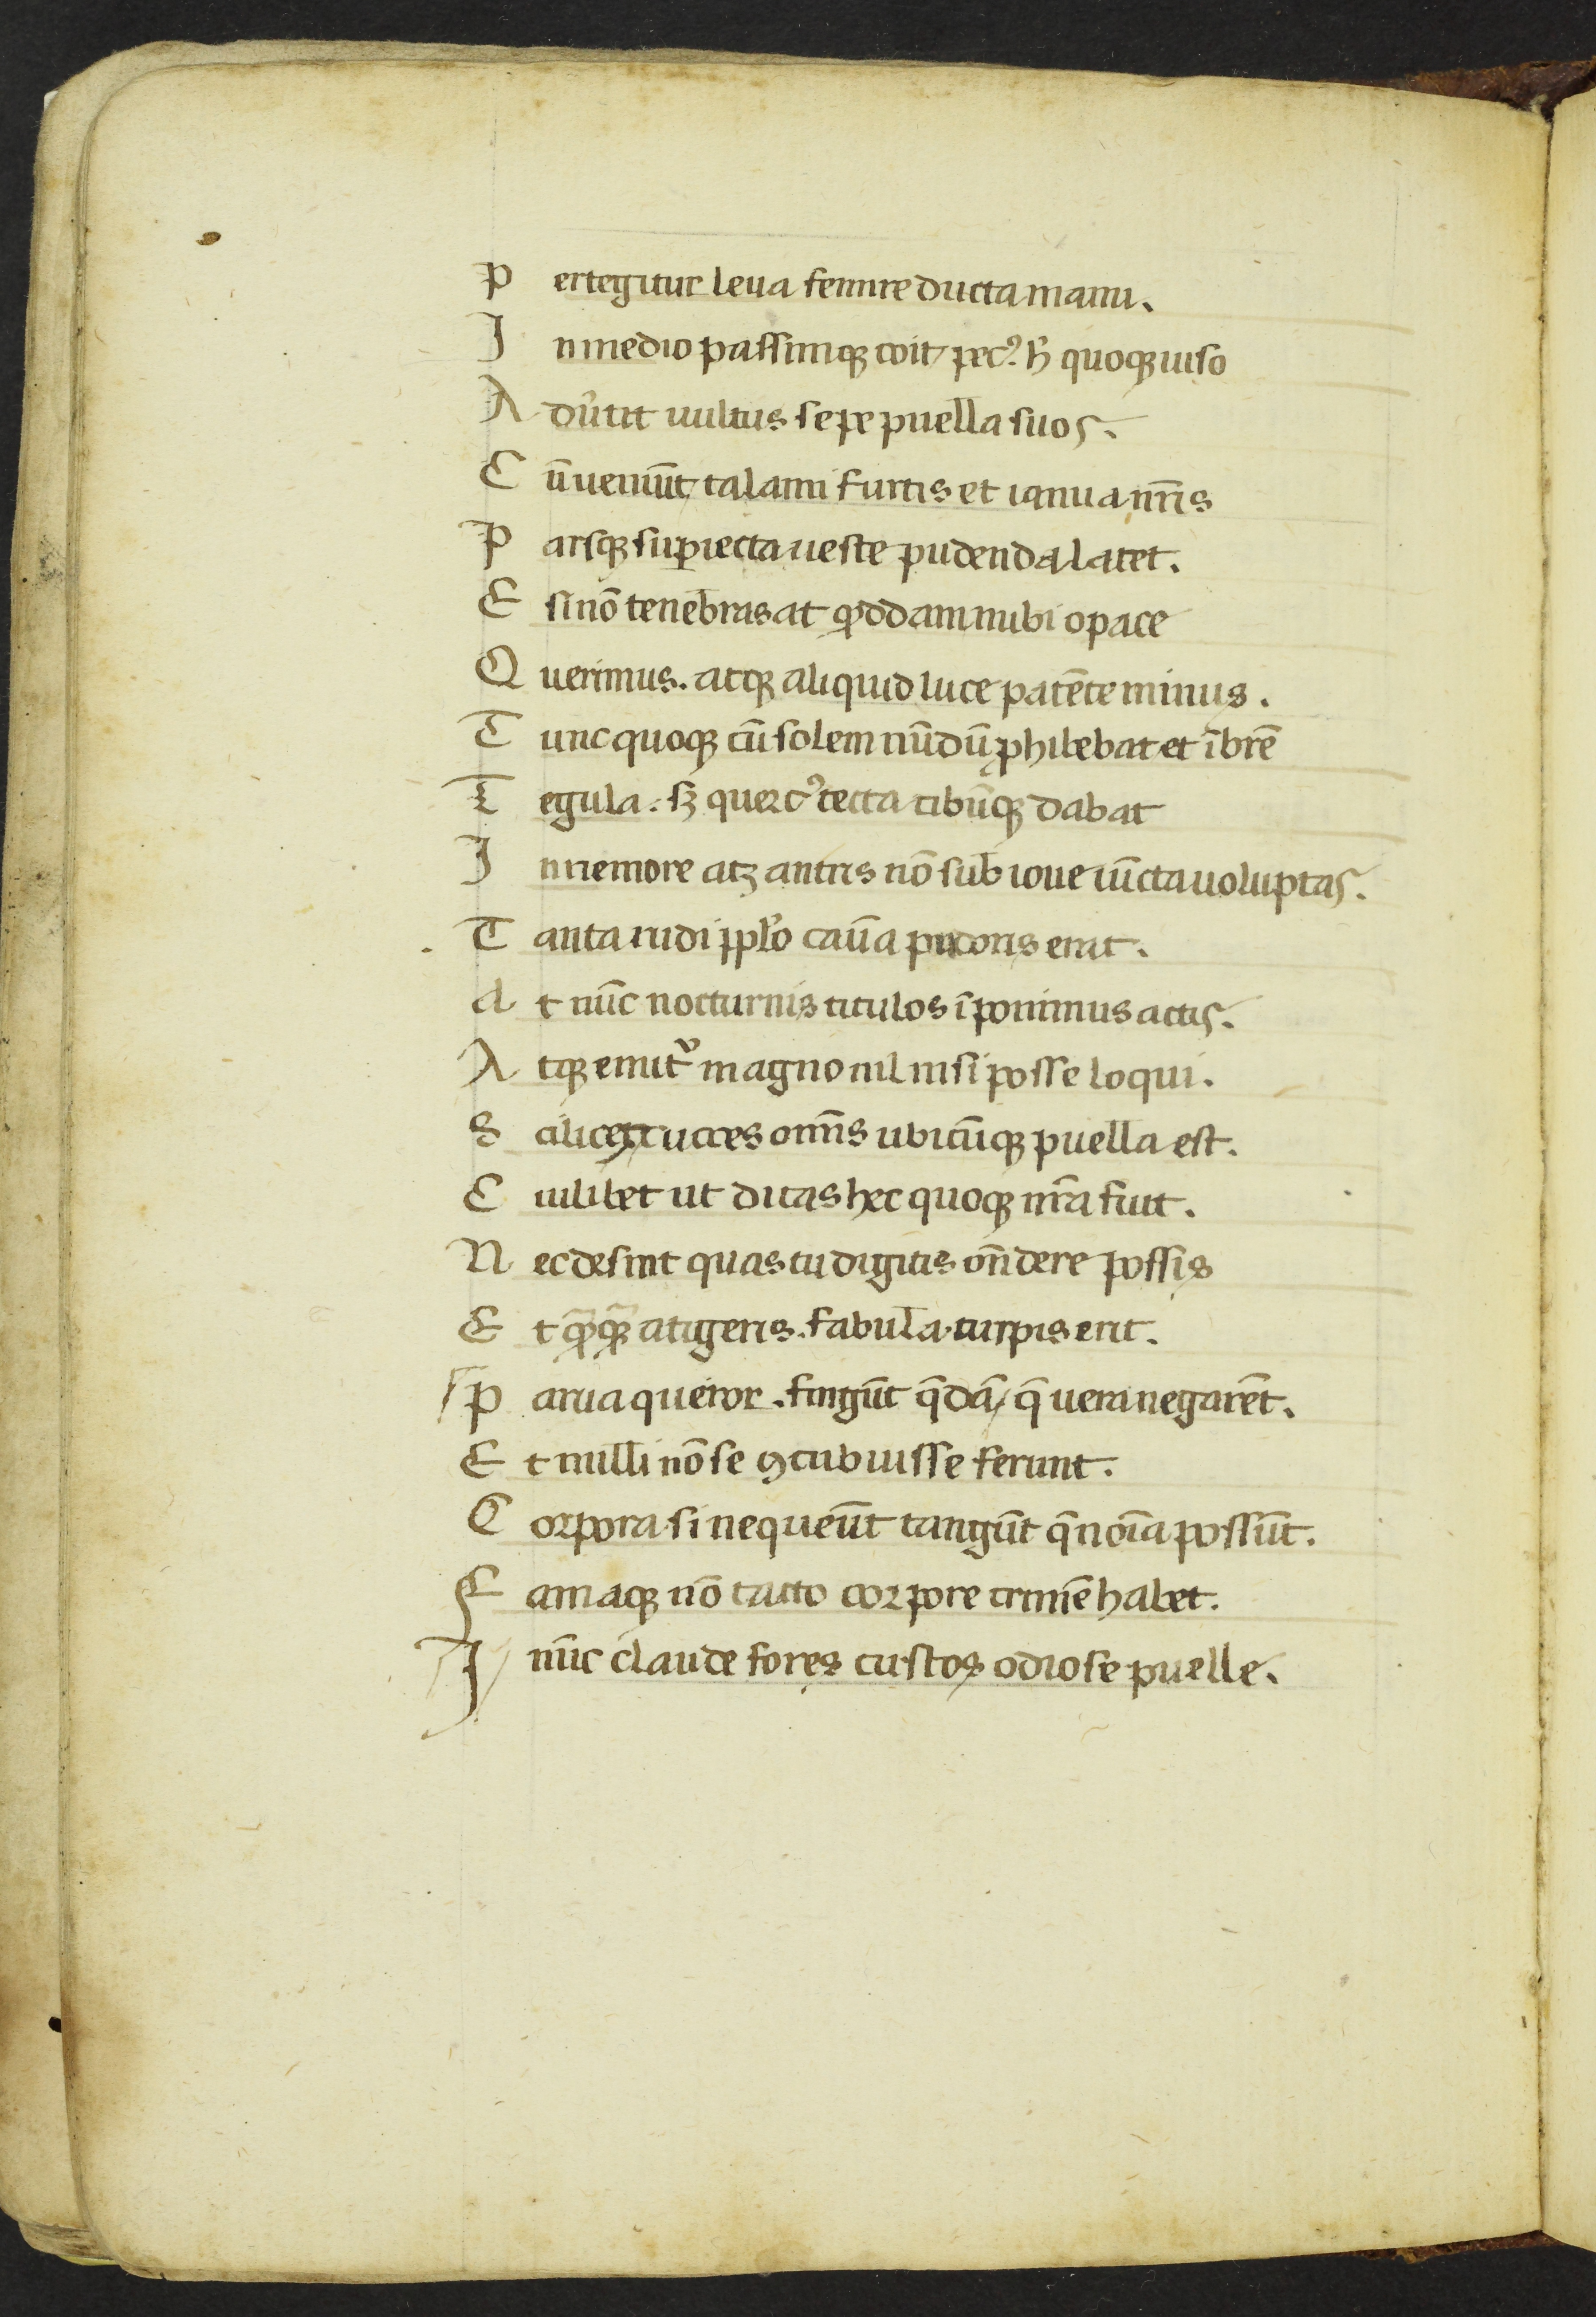 P ertegitur leua semireducta manu.
I n medio passimqȝ coit pecꝰ. h̄ quoqȝ uiso
A dūtit uultus sepe puella suos.
C ūueniūt talami furtis et ianua nr̄is
P arsqȝ suꝑiecta ueste pudenda latet.
E si nō tenebras at qͦddam nubi opace
Q uerimus. atqȝ aliquid luce patēte minus.
T unc quoqȝ cū solem nūdū ꝓhilebat et ībrē
T egula. sȝ quercꝰ tecta cibūqȝ dabat
I n nemore atȝ antris nō sub ioue iūcta uoluptas.
T anta rudi ppl̄o cau̅a pudoris erat.
A t nūc nocturnis titulos īponimus actis.
A tqȝ emit᷑ magno nil nisi posse loqui.
S cilicet excuties om̄s ubicūqȝ puella est.
C uilibet ut dicas hec quoqȝ nr̄a fuit.
N ec desint quas tu digitis on̄dere possis
E t qāqȝ atigeris. fabula turpis erit.
P arua queror. fingūt q̄dā, q̄ uera negarēt.
E t nulli nō se ꝯcubuisse ferunt.
C orpora si nequeūt tangūt q̄ noīa possūt.
F amaqȝ nō tacto corpore crimē habet.
I nūc claude fores custos odiose puelle.